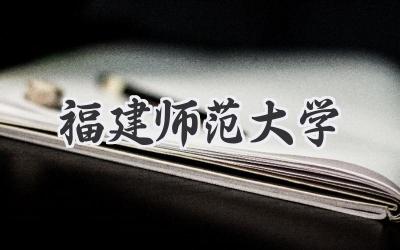 福建师范大学